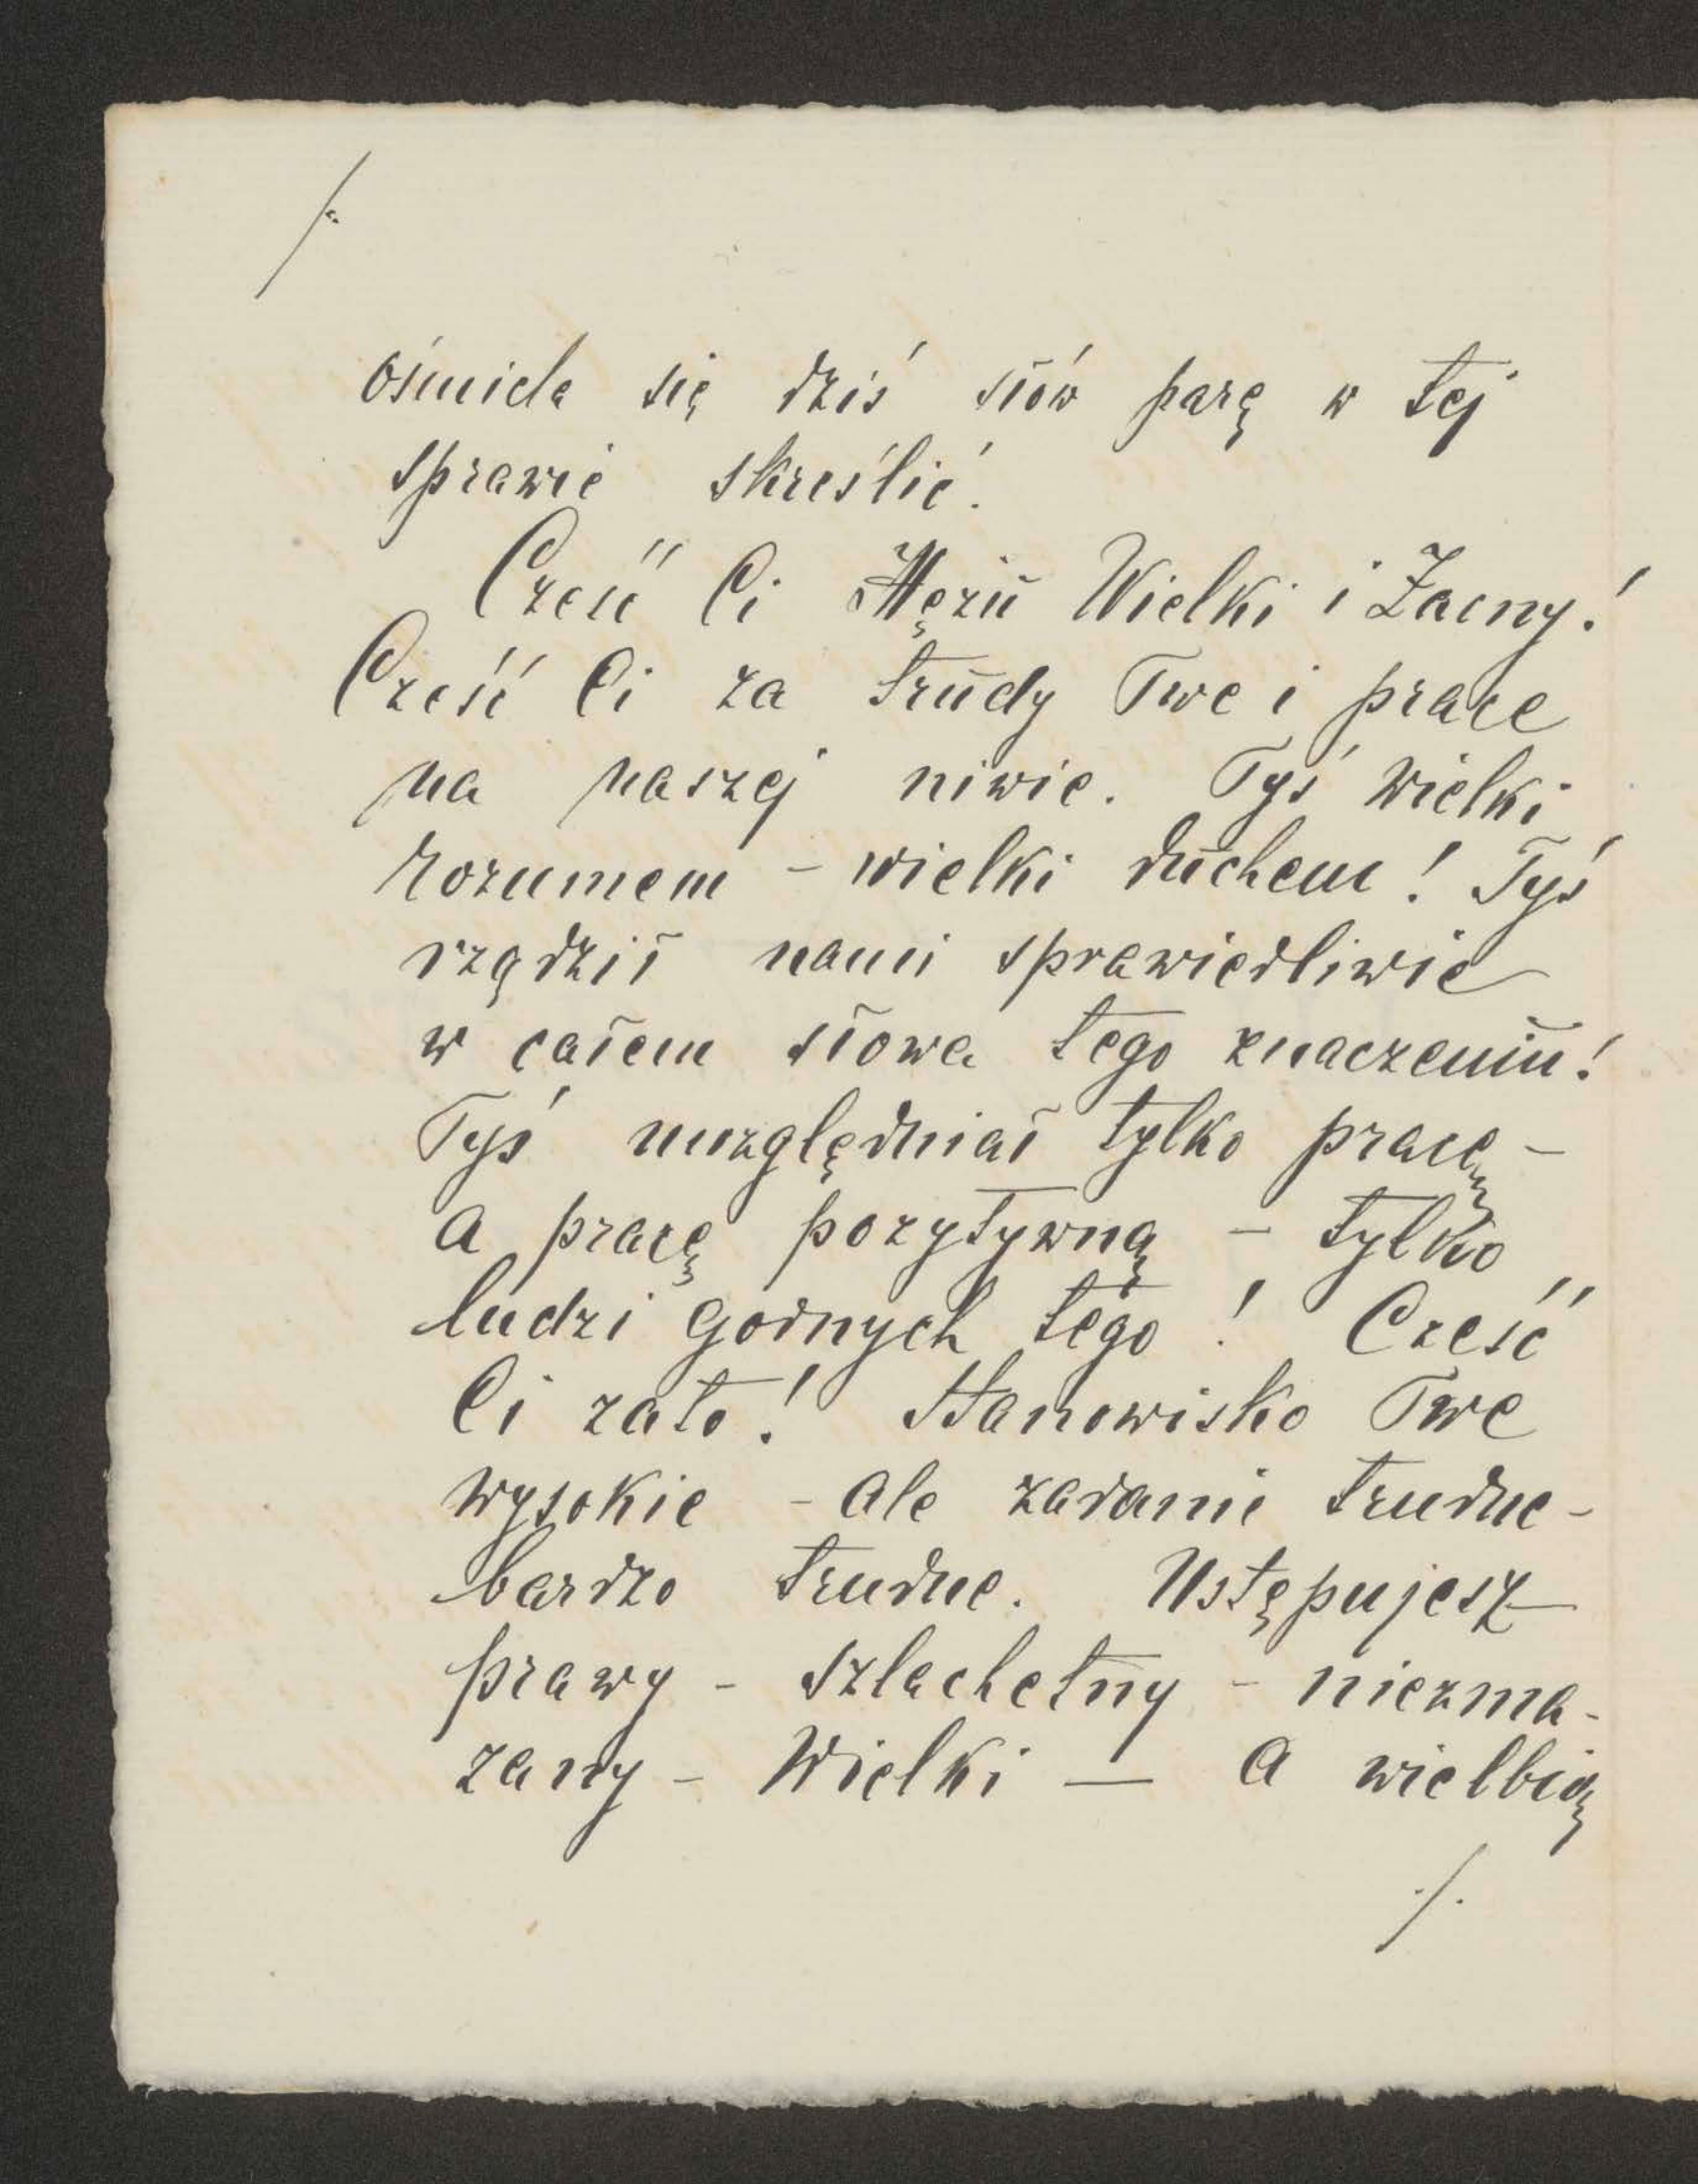 /.
ośmiela się dziś słów parę w tej
sprawie skreślić.
Cześć Ci Mężu Wielki i Zacny!
Cześć Ci za trudy Twe i prace
na naszej niwie. Tyś wielki
rozumem - wielki duchem! Tyś
rządził nami sprawiedliwie
w całem słowa tego znaczeniu!
Tyś uwzględniał tylko pracę -
a pracę pozytywną - tylko
ludzi godnych tego! Cześć
Ci zato! Stanowisko Twe
wysokie - ale zadanie trudne -
bardzo trudne. Ustępujesz
prawy - szlachetny - niezma-
zany - Wielki — a wielbią
./.